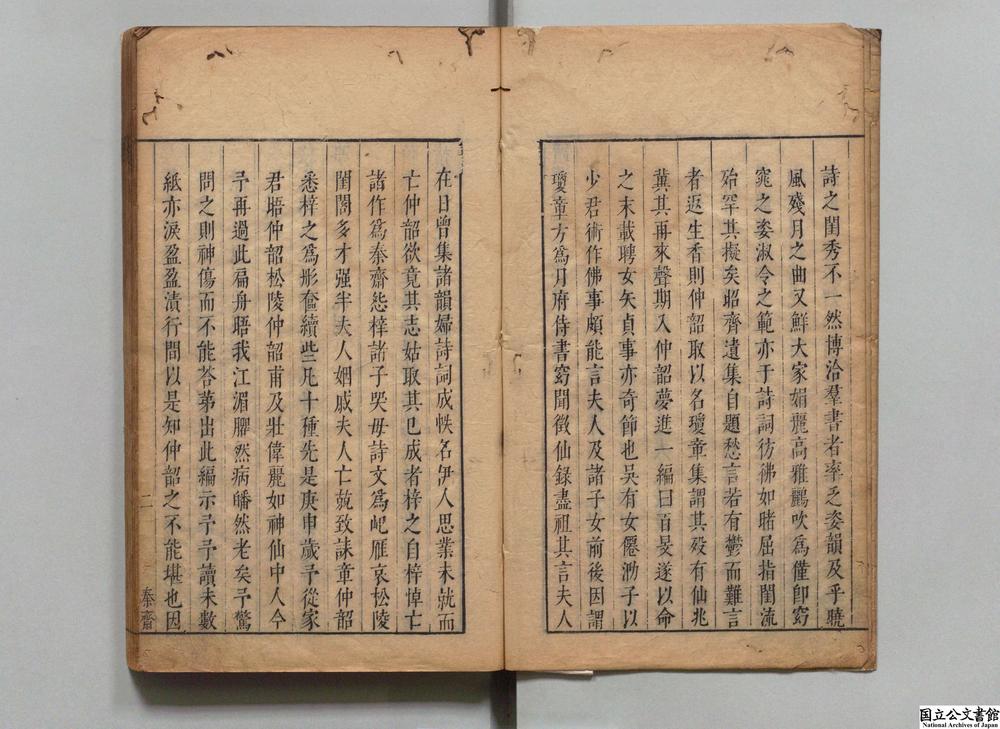 詩之閨秀不一然博洽羣書者率乏姿韻及乎曉
風殘月之曲又鮮大家娟麗高雅鸝吹為僅卽窈
窕之姿淑令之範亦于詩詞彷彿如睹屈指閨流
殆罕其擬矣昭齊遺集自題愁言若有鬱而難言
者返生香則仲韶取以名瓊章集謂其歿有仙兆
冀其再來聲期入仲韶夢進一編曰百旻遂以命
之末載聘女矢貞事亦奇節也吳有女僊泐子以
少君術作佛事頗能言夫人及諸子女前後因謂
瓊章方爲月府侍書窈聞徵仙錄盡祖其言夫人
在日曾集諸韻婦詩詞成帙名伊人思業未就而
亡仲韶欲竟其志姑取其已成者梓之自梓悼亡
諸作爲秦齋怨梓諸子哭母詩文爲屺雁哀松陵
閨閣多才强半夫人姻戚夫人亡競致誄章仲韶
悉梓之爲彤奩續些凡十種先是庚申歲予從家
君晤仲韶松陵仲韶甫及壯偉麗如神仙中人今
予再過此扁舟晤我江湄臞然病皤然老矣予驚
問之則神傷而不能荅苐出此編示予予讀未數
紙亦淚盈盈漬行間以是知仲韶之不能堪也因
二
秦齋
国立公文書館
National Archives of Japan